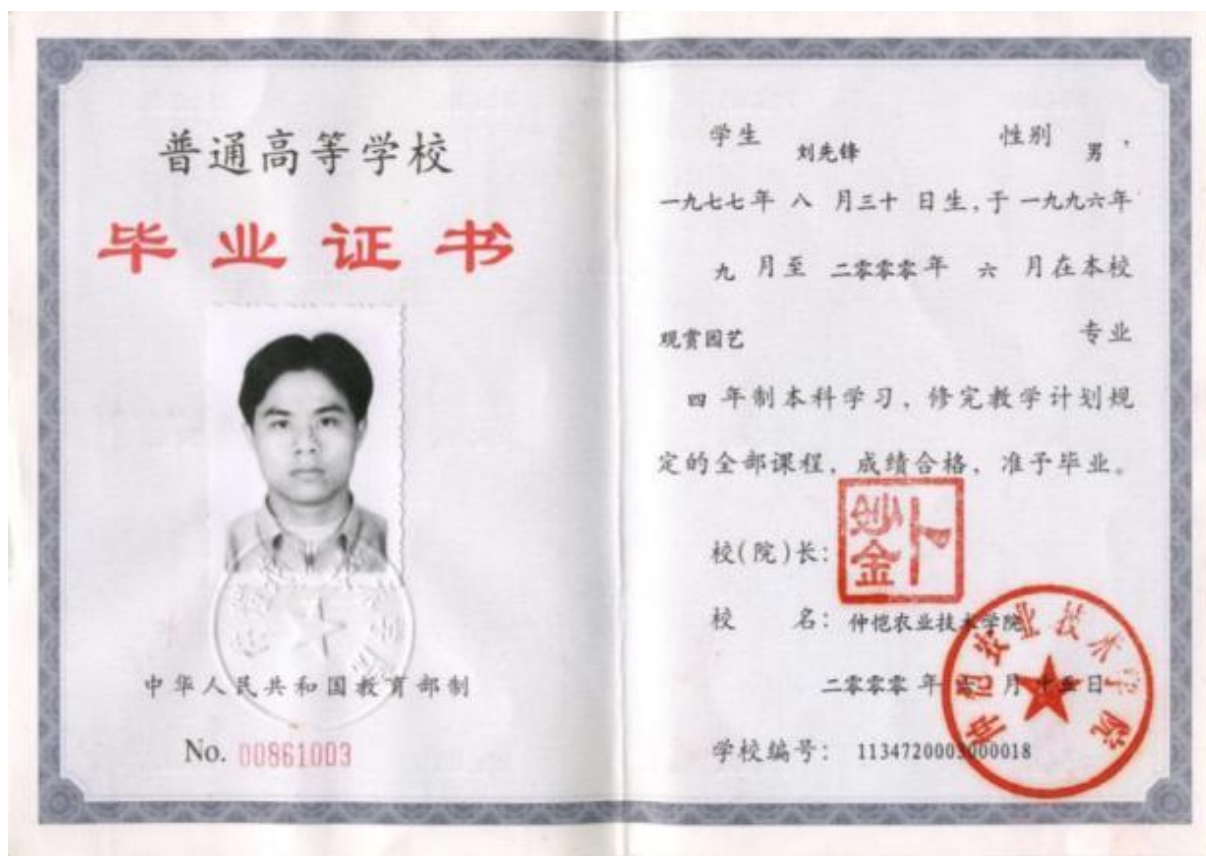 普通高等学校
毕业证书
中华人民共和国教育部制
No. 00861003
学生 刘先锋 性别 男 ,
一九七七年 八 月三十 日生,于 一九九六年
九 月至 二零零零年 六 月在本校
观赏园艺 专业
四 年制本科学习,修完教学计划规
定的全部课程,成绩合格,准予毕业。
校(院)长:
卜 金
校 名: 仲恺农业技术学院
仲恺农业技术学院
二零零零 年 月 十五日
学校编号: 113472000 000018